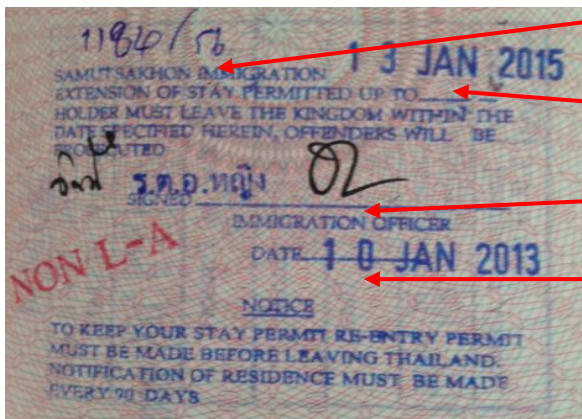 1184/56
13 JAN 2015
SAMUTSAKHON IMMIGRATION
EXTENSION OF STAY PERMITTED UP TO
HOLDER MUST LEAVE THE KINGDOM WITHIN THE
DATE SPECIFIED HEREIN, OFFENDERS WILL BE
PROSECUTED
ร.ต.อ.หญิง
SIGNED
IMMIGRATION OFFICER
DATE 10 JAN 2013
NON L-A
NOTICE
TO KEEP YOUR STAY PERMIT RE-ENTRY PERMIT
MUST BE MADE BEFORE LEAVING THAILAND.
NOTIFICATION OF RESIDENCE MUST BE MADE
EVERY 90 DAYS